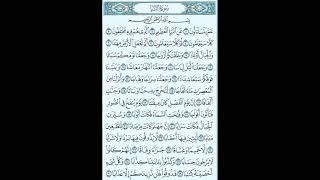 سُورَةُ النَّبَإِ
بِسْمِ ٱللَّهِ ٱلرَّحْمَٰنِ ٱلرَّحِيمِ
عَمَّ يَتَسَآءَلُونَ ١ عَنِ ٱلنَّبَإِ ٱلْعَظِيمِ ٢ ٱلَّذِى هُمْ فِيهِ مُخْتَلِفُونَ ٣
كَلَّا سَيَعْلَمُونَ ٤ ثُمَّ كَلَّا سَيَعْلَمُونَ ٥ أَلَمْ نَجْعَلِ ٱلْأَرْضَ مِهَٰدًا ٦
وَٱلْجِبَالَ أَوْتَادًا ٧ وَخَلَقْنَٰكُمْ أَزْوَٰجًا ٨ وَجَعَلْنَا نَوْمَكُمْ سُبَاتًا ٩
وَجَعَلْنَا ٱلَّيْلَ لِبَاسًا ١٠ وَجَعَلْنَا ٱلنَّهَارَ مَعَاشًا ١١ وَبَنَيْنَا
فَوْقَكُمْ سَبْعًا شِدَادًا ١٢ وَجَعَلْنَا سِرَاجًا وَهَّاجًا ١٣ وَأَنزَلْنَا مِنَ
ٱلْمُعْصِرَٰتِ مَآءً ثَجَّاجًا ١٤ لِّنُخْرِجَ بِهِۦ حَبًّا وَنَبَاتًا ١٥ وَجَنَّٰتٍ
أَلْفَافًا ١٦ إِنَّ يَوْمَ ٱلْفَصْلِ كَانَ مِيقَٰتًا ١٧ يَوْمَ يُنفَخُ فِى ٱلصُّورِ
فَتَأْتُونَ أَفْوَاجًا ١٨ وَفُتِحَتِ ٱلسَّمَآءُ فَكَانَتْ أَبْوَٰبًا ١٩ وَسُيِّرَتِ
ٱلْجِبَالُ فَكَانَتْ سَرَابًا ٢٠ إِنَّ جَهَنَّمَ كَانَتْ مِرْصَادًا ٢١ لِّلطَّٰغِينَ
مَـَٔابًا ٢٢ لَّٰبِثِينَ فِيهَآ أَحْقَابًا ٢٣ لَّا يَذُوقُونَ فِيهَا بَرْدًا وَلَا شَرَابًا ٢٤
إِلَّا حَمِيمًا وَغَسَّاقًا ٢٥ جَزَآءً وِفَاقًا ٢٦ إِنَّهُمْ كَانُوا۟
لَا يَرْجُونَ حِسَابًا ٢٧ وَكَذَّبُوا۟ بِـَٔايَٰتِنَا كِذَّابًا ٢٨ وَكُلَّ شَىْءٍ
أَحْصَيْنَٰهُ كِتَٰبًا ٢٩ فَذُوقُوا۟ فَلَن نَّزِيدَكُمْ إِلَّا عَذَابًا ٣٠